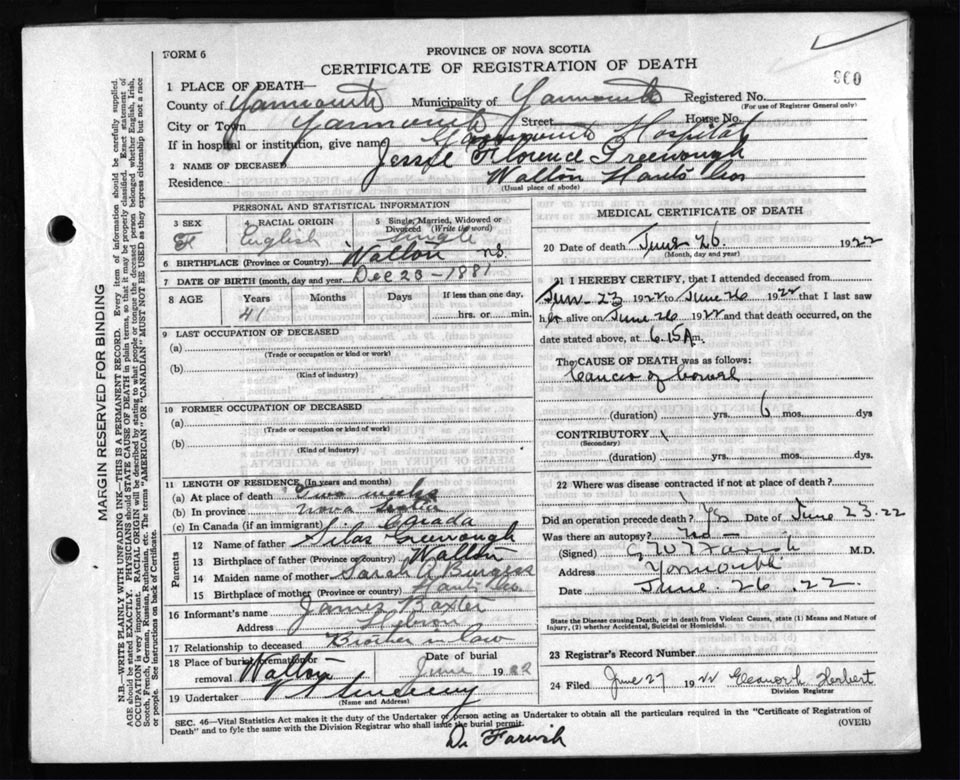 FORM 6
PROVINCE OF NOVA SCOTIA
CERTIFICATE OF REGISTRATION OF DEATH
960
1 PLACE OF DEATH—
County of Yarmouth Municipality of Yarmouth Registered No.
(For use of Registrar General only)
City or Town Yarmouth Street House No.
If in hospital or institution, give name Yarmouth Hospital
2 NAME OF DECEASED Jessie Greenough
Residence Walton Hants Co
(Usual place of abode)
PERSONAL AND STATISTICAL INFORMATION
3 SEX F
4 RACIAL ORIGIN English
5 Single, Married, Widowed or Divorced (Write the word) Single
6 BIRTHPLACE (Province or Country) Walton N.S.
7 DATE OF BIRTH (month, day and year) Dec 23 - 1881
8 AGE Years Months Days If less than one day,
41 hrs. or min.
9 LAST OCCUPATION OF DECEASED
(a)
(Trade or occupation or kind or work)
(b)
(Kind of industry)
10 FORMER OCCUPATION OF DECEASED
(a)
(Trade or occupation or kind of work)
(b)
(Kind of industry)
11 LENGTH OF RESIDENCE (In years and months)
(a) At place of death Two weeks
(b) In province Nova Scotia
(c) In Canada (if an immigrant) Canada
Parents
12 Name of father Silas Greenough
13 Birthplace of father (Province or Country) Walton
14 Maiden name of mother Sarah A Burgess
15 Birthplace of mother (Province or Country) Hants Co.
16 Informant's name James Baxter
Address Hebron
17 Relationship to deceased Brother in law
18 Place of burial, cremation or removal Walton
Date of burial June 1922
19 Undertaker
(Name and Address)
MEDICAL CERTIFICATE OF DEATH
20 Date of death June 26 1922
(Month, day and year)
21 I HEREBY CERTIFY, that I attended deceased from
June 23 1922 to June 26 1922 that I last saw
her alive on June 26 1922 and that death occurred, on the
date stated above, at 6.15 A m.
The CAUSE OF DEATH was as follows:
Cancer of bowel.
(duration) yrs. 6 mos. dys
CONTRIBUTORY
(Secondary)
(duration) yrs. mos. dys.
22 Where was disease contracted if not at place of death?
Did an operation precede death? Yes Date of June 23.22
Was there an autopsy? No
(Signed) G W T Farish M.D.
Address Yarmouth
Date June 26. 22.
State the Disease causing Death, or in death from Violent Causes, state (1) Means and Nature of Injury, (2) whether Accidental, Suicidal or Homicidal.
23 Registrar's Record Number
24 Filed June 27 1922 Eleanor h Herbert
Division Registrar
SEC. 46—Vital Statistics Act makes it the duty of the Undertaker or person acting as Undertaker to obtain all the particulars required in the "Certificate of Registration of
Death" and to fyle the same with the Division Registrar who shall issue the burial permit.
(OVER)
Dr Farish
MARGIN RESERVED FOR BINDING
N.B.—WRITE PLAINLY WITH UNFADING INK—THIS IS A PERMANENT RECORD. Every item of information should be carefully supplied.
AGE should be stated EXACTLY. PHYSICIANS should STATE CAUSE OF DEATH in plain terms, so that it may be properly classified. Exact statement of
OCCUPATION is very important. RACIAL ORIGIN will be described by stating to what people or tongue the deceased person belonged whether English, Irish,
Scotch, French, German, Russian, Ruthenian, etc. The terms "AMERICAN" OR "CANADIAN" MUST NOT BE USED as they express citizenship but not a race
or people. See instructions on back of Certificate.